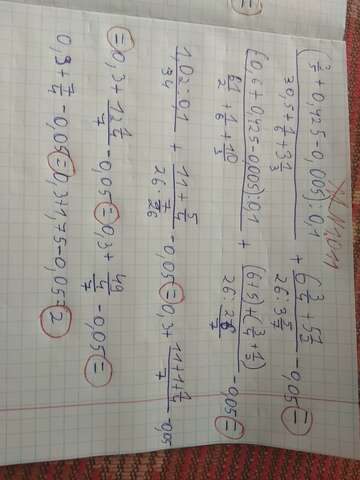 №1011
(3/5 + 0,425 - 0,005) : 0,1 / (30,5 + 1/6 + 3 1/3) + (6 3/4 + 5 1/2) / (26 : 3 5/7) - 0,05 =
(0,6 + 0,425 - 0,005) : 0,1 / (61/2 + 1/6 + 10/3) + (6+5)+(3/4 + 1/2) / (26 : 26/7) - 0,05 =
1,02 : 0,1 / 34 + (11 + 5/4) / (26 · 7/26) - 0,05 = 0,3 + (11+1+1/4) / 7 - 0,05
= 0,3 + 12 1/4 / 7 - 0,05 = 0,3 + 49/4 / 7 - 0,05 =
0,3 + 7/4 - 0,05 = 0,3 + 1,75 - 0,05 = 2